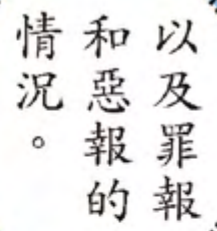 以及罪報
和惡報的
情況。